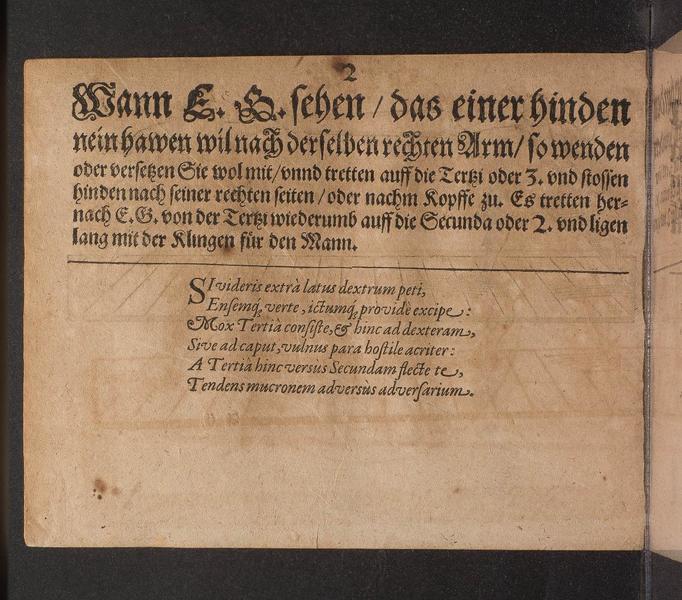 2
Wann E. G. sehen / das einer hinden
nein hawen wil nach derselben rechten Arm / so wenden
oder versetzen Sie wol mit / vnnd tretten auff die Tertzi oder 3. vnd stossen
hinden nach seiner rechten seiten / oder nachm Kopffe zu. Es tretten her-
nach E. G. von der Tertzi wiederumb auff die Secunda oder 2. vnd ligen
lang mit der Klingen für den Mann.
SI videris extrà latus dextrum peti,
Ensemq́; verte, ictumq́; providè excipe:
Mox Tertià consiste, & hinc ad dexteram,
Sive ad caput, vulnus para hostile acriter:
A Tertià hinc versùs Secundam flecte te,
Tendens mucronem adversùs adversarium.